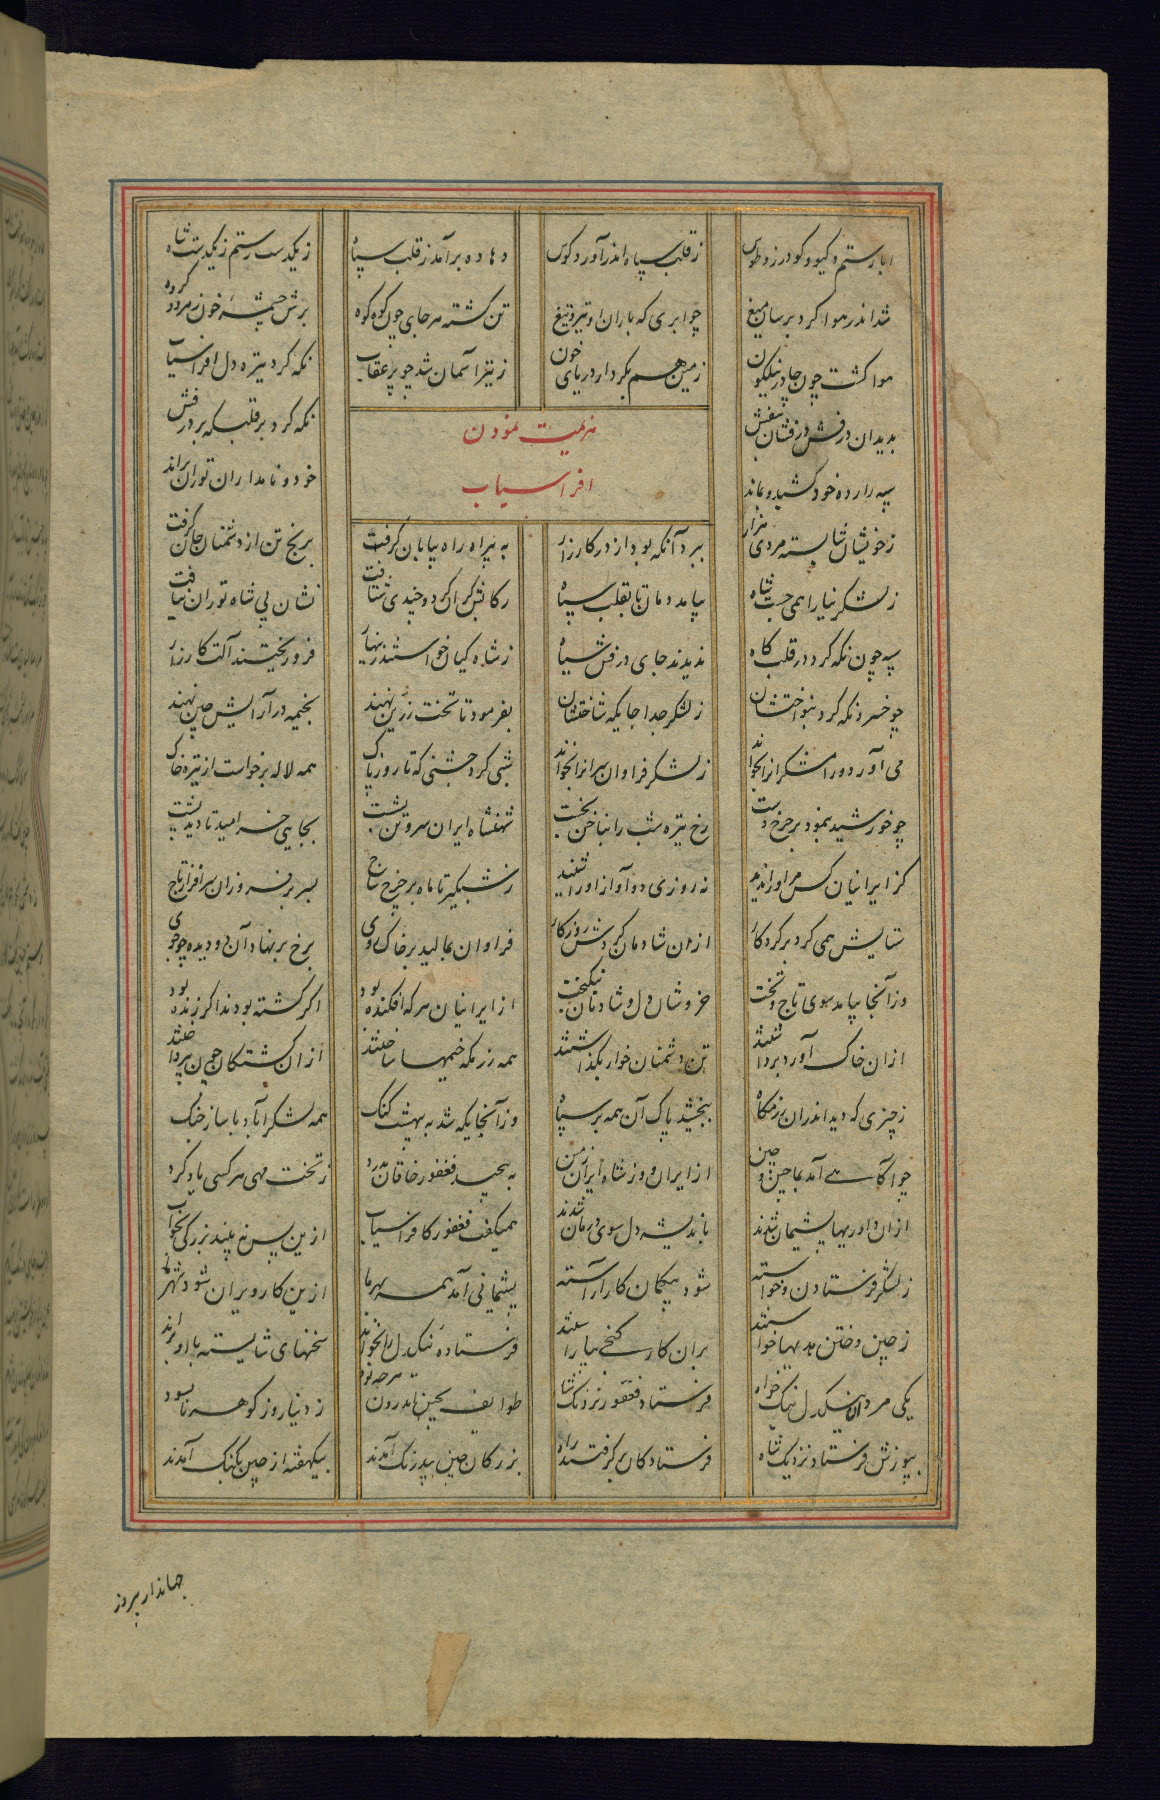 ابا رستم و گیو و گودرز و طوس ز قلب سپاه اندر آورد کوس دهاده برآمد ز قلب سپاه ز یکدست رستم ز یکدست شاه
شد اندر هوا کرد برسان میغ چو ابری که باران او تیر و تیغ تن کشته هر جای چون کوه کوه برش چشمهٔ خون ز هر دو گروه
هوا کشت چون چادر نیلگون زمین هم بکردار دریای خون ز تیر آسمان شد چو پر عقاب نکه کرد تیره دل افراسیاب
بدید آن درفش درفشان بنفش نکه کرد بر قلبکه بر درفش
هزیمت نمودن
افراسیاب
سپه را رده خود کشید و بماند خود و نامداران توران براند
ز خویشان شایسته مردی هزار ببرد آنکه بود از در کارزار به بیراه راه بیابان کرفت برنج تن از دشمنان جان کرفت
ز لشکر نیا را همی جست شاه بیامد دمان تا بقلب سپاه رکابش کران کرد و چندی شتافت نشان پی شاه توران نیافت
سپه چون نکه کرد در قلب کاه ندیدند جای درفش سیاه ز شاه کیان خواستند زینهار فرو ریختند آلت کارزار
چو خسرو نکه کرد بنواختشان ز لشکر جدا جایکه ساختشان بفرمود تا تخت زرین نهند بخیمه در آرایش چین نهند
می آورد و رامشکران را بخواند ز لشکر فراوان سران را بخواند شبی کرد جشنی که تا روز پاک همه لاله برخواست از تیره خاک
چو خورشید بنمود بر چرخ دست رخ تیره شب را بناخن بخست شهنشاه ایران سر و تن بشست بجایی خرامید تا دید پست
کز ایرانیان کس مر او را ندید نه روزی دد آواز او را شنید ز شبگیر تا ماه بر چرخ ساج بسر بر فروزان سر افراز تاج
ستایش همی کرد بر کردکار ازان شادمان کردش روزکار فراوان بمالید بر خاک روی برخ بر نهاد آن دو دیده چو جوی
وز آنجا بیامد سوی تاج و تخت خروشان دل و شادمان نیکبخت از ایرانیان هر که افکنده بود اکر کشته بودند اکر زنده بود
ازان خاک آورد برداشتند تن دشمنان خوار بکذاشتند همه رزمکه خیمها ساختند ازان کشتکان چون بپرداختند
ز چیزی که دید اندران رزمکاه ببخشید پاک آن همه بر سپاه وز آنجایکه شد به بهشت کنک همه لشکر آباد با ساز جنک
چو آکاهی آمد بماچین و چین از ایران وز شاه ایران زمین به پیچید فغفور خاقان بدرد ز تخت مهی هر کسی یاد کرد
ازان داوریها پشیمان شدند باندیشه دل سوی درمان شدند همیکفت فغفور کافراسیاب ازین پس نه بیند بزرکی بخواب
ز لشکر فرستادن و خواسته شود بیکمان کار آراسته پشیمانی آمد همه بهر ما ازین کار ویران شود شهر ما
ز چین و ختن هدیها خواستند بران کار کنجی بیاراستند فرستادهٔ نیکدل را بخواند سخنهای شایسته با او براند
یکی مرد نیکدل نیک خواه فرستاد فغفور نزدیک شاه طوایف بچین اندرون هر چه بود ز دینار وز کوهر نابسود
بپوزش فرستاد نزدیک شاه فرستادکان برکرفتند راه بزرکان چین بیدرنک آمدند بیکهفته از چین بکنک آمدند
جهاندار پیروز